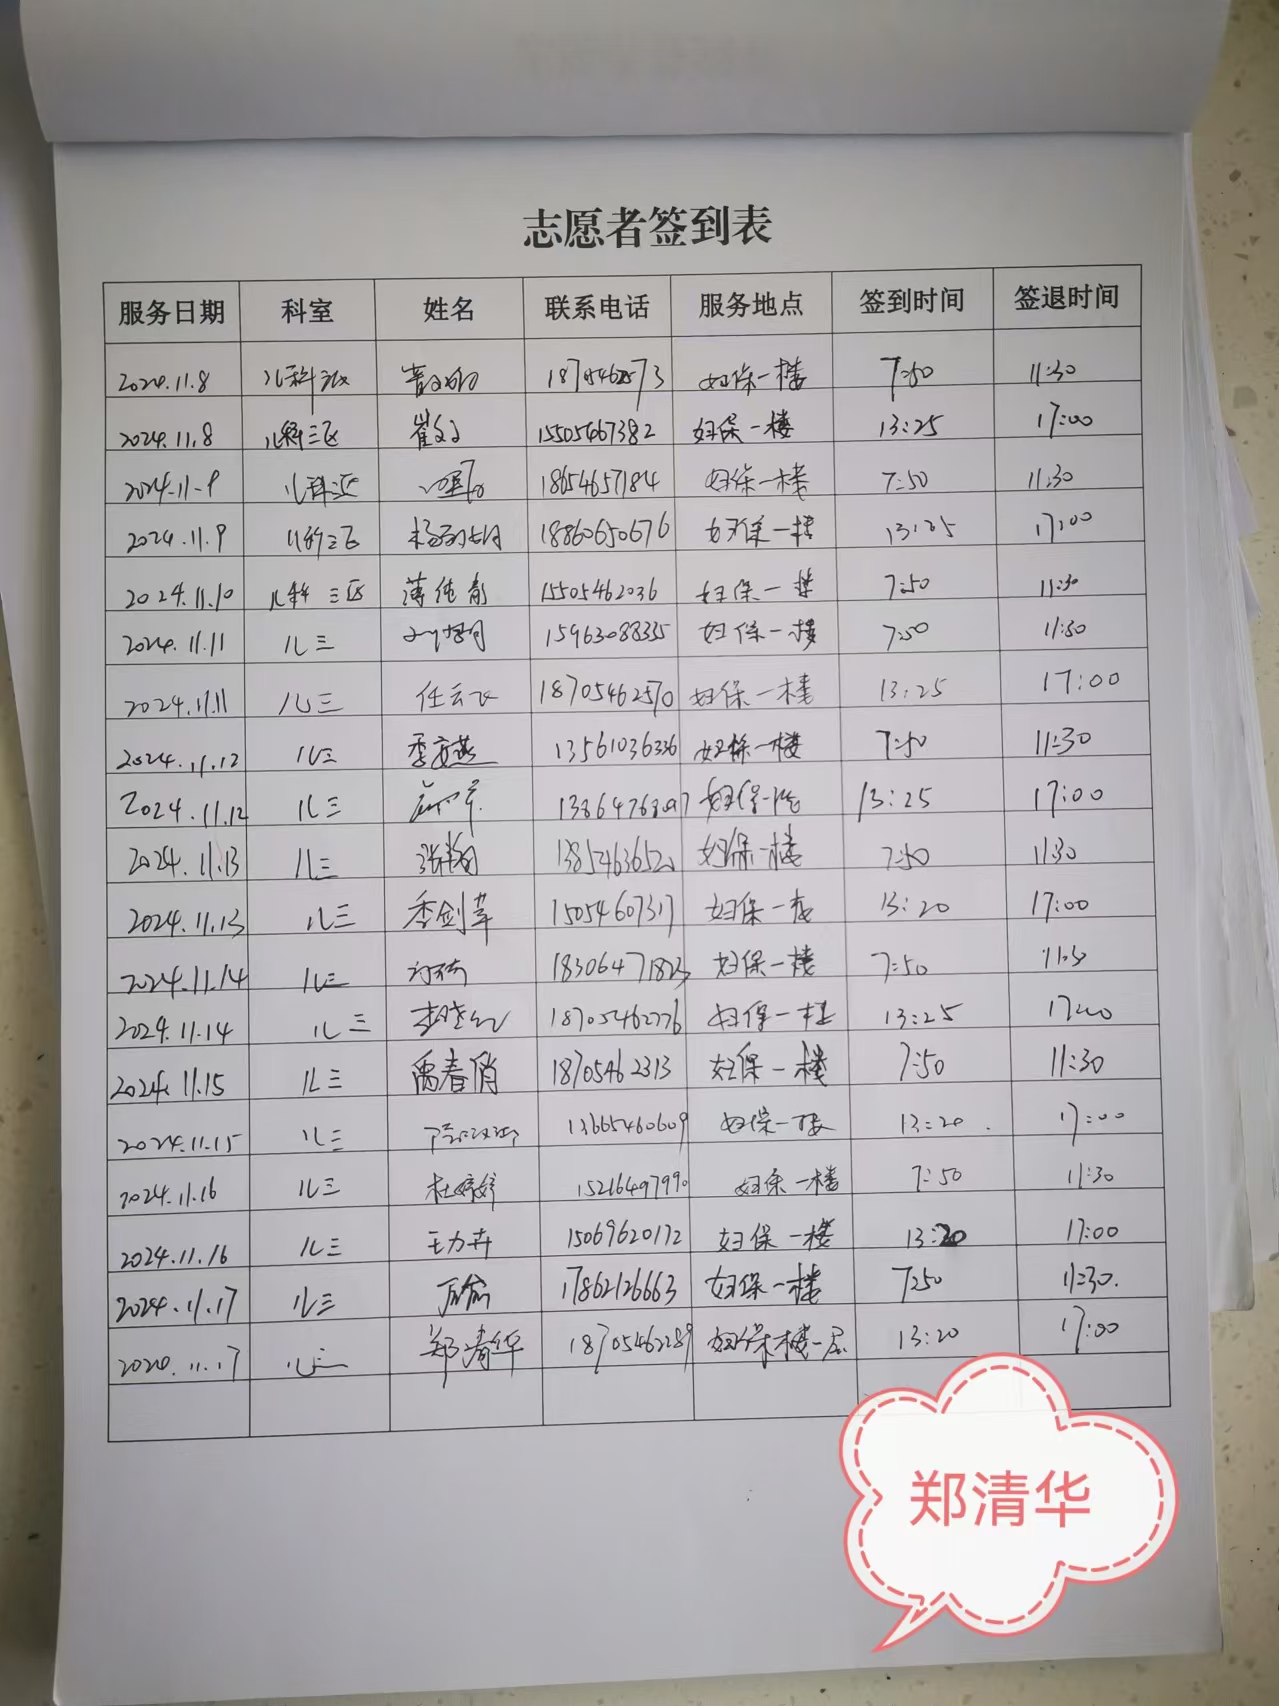 志愿者签到表
服务日期 科室 姓名 联系电话 服务地点 签到时间 签退时间
2024.11.8 儿科三区 妇保一楼 7:50 11:30
2024.11.8 儿科三区 崔文 15505467382 妇保一楼 13:25 17:00
2024.11.9 儿科三区 18654657184 妇保一楼 7:50 11:30
2024.11.9 儿科三区 18860650676 妇保一楼 13:25 17:00
2024.11.10 儿科三区 薄纯青 15505462036 妇保一楼 7:50 11:30
2024.11.11 儿三 15963088335 妇保一楼 7:50 11:30
2024.11.11 儿三 任云飞 18705462570 妇保一楼 13:25 17:00
2024.11.12 儿三 13561036336 妇保一楼 7:50 11:30
2024.11.12 儿三 妇保一楼 13:25 17:00
2024.11.13 儿三 张翰 妇保一楼 7:50 11:30
2024.11.13 儿三 季剑苹 15054607317 妇保一楼 13:20 17:00
2024.11.14 儿三 18306471823 妇保一楼 7:50 11:30
2024.11.14 儿三 18705462776 妇保一楼 13:25 17:00
2024.11.15 儿三 禹春俏 18705462313 妇保一楼 7:50 11:30
2024.11.15 儿三 13665460609 妇保一楼 13:20 17:00
2024.11.16 儿三 杜婷婷 15216497990 妇保一楼 7:50 11:30
2024.11.16 儿三 王力卉 15069620172 妇保一楼 13:20 17:00
2024.11.17 儿三 17862126663 妇保一楼 7:50 11:30
2020.11.17 儿三 郑清华 18705462289 妇保楼一层 13:20 17:00
郑清华